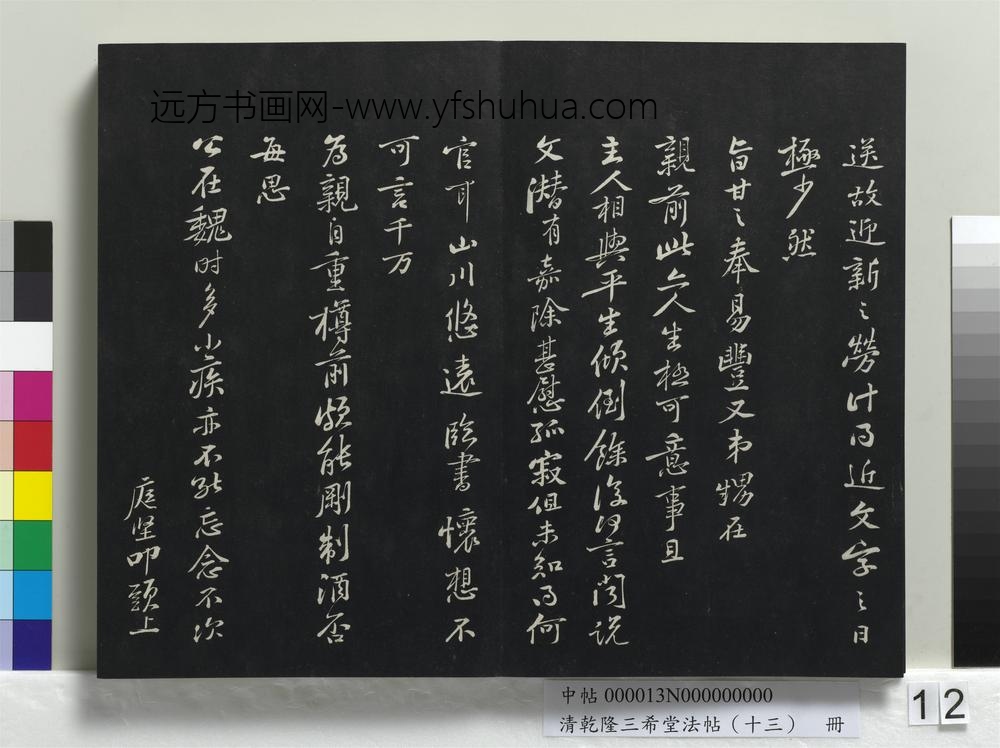 远方书画网-www.yfshuhua.com
送故迎新之勞計得近文字之日
極少然
旨甘之奉易豐又弟甥在
親前此亦人生極可意事且
主人相與平生傾倒餘復何言聞說
文潛有嘉除甚慰孤寂但未知得何
官耳山川悠遠臨書懷想不
可言千万
為親自重樽前頗能剛制酒否
每思
公在魏时多小疾亦不能忘念不次
庭堅叩頭上
中帖 000013N000000000
清乾隆三希堂法帖（十三） 冊
12